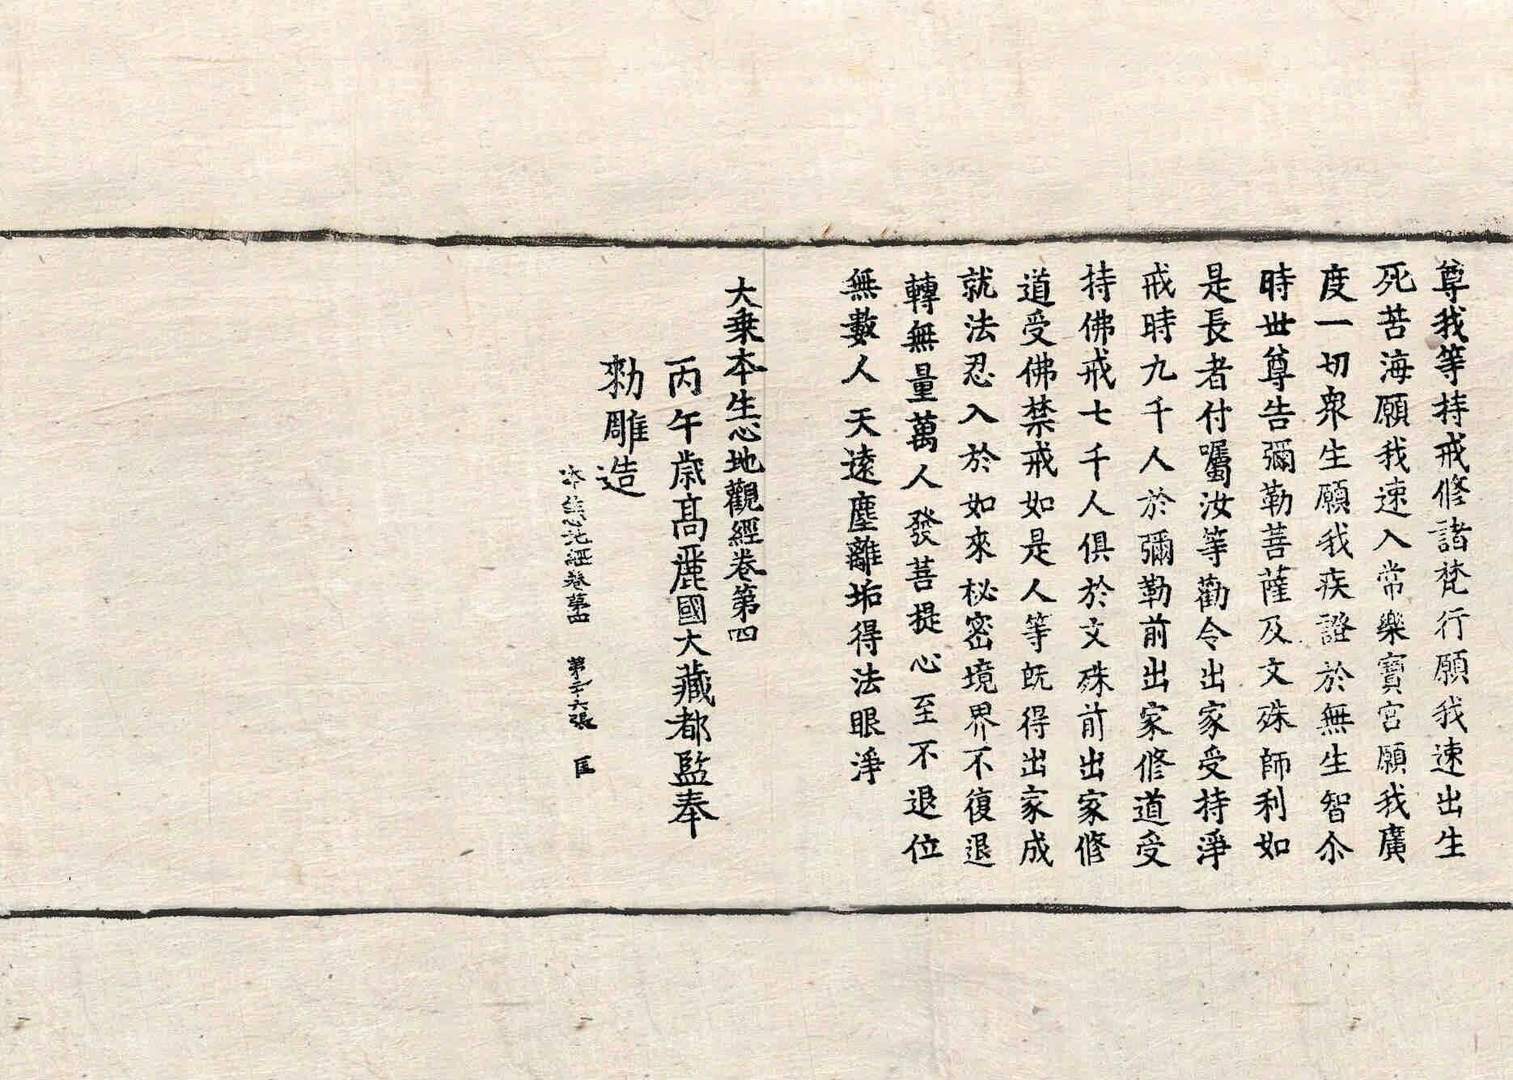 尊我等持戒修諸梵行願我速出生
死苦海願我速入常樂寶宮願我廣
度一切衆生願我疾證於無生智尒
時世尊告彌勒菩薩及文殊師利如
是長者付囑汝等勸令出家受持淨
戒時九千人於彌勒前出家修道受
持佛戒七千人俱於文殊前出家修
道受佛禁戒如是人等旣得出家成
就法忍入於如來秘密境界不復退
轉無量萬人發菩提心至不退位
無數人天遠塵離垢得法眼淨
大乗本生心地觀經卷第四
丙午歲高麗國大藏都監奉
勑雕造
本生心地經卷第四 第二十六張 匡